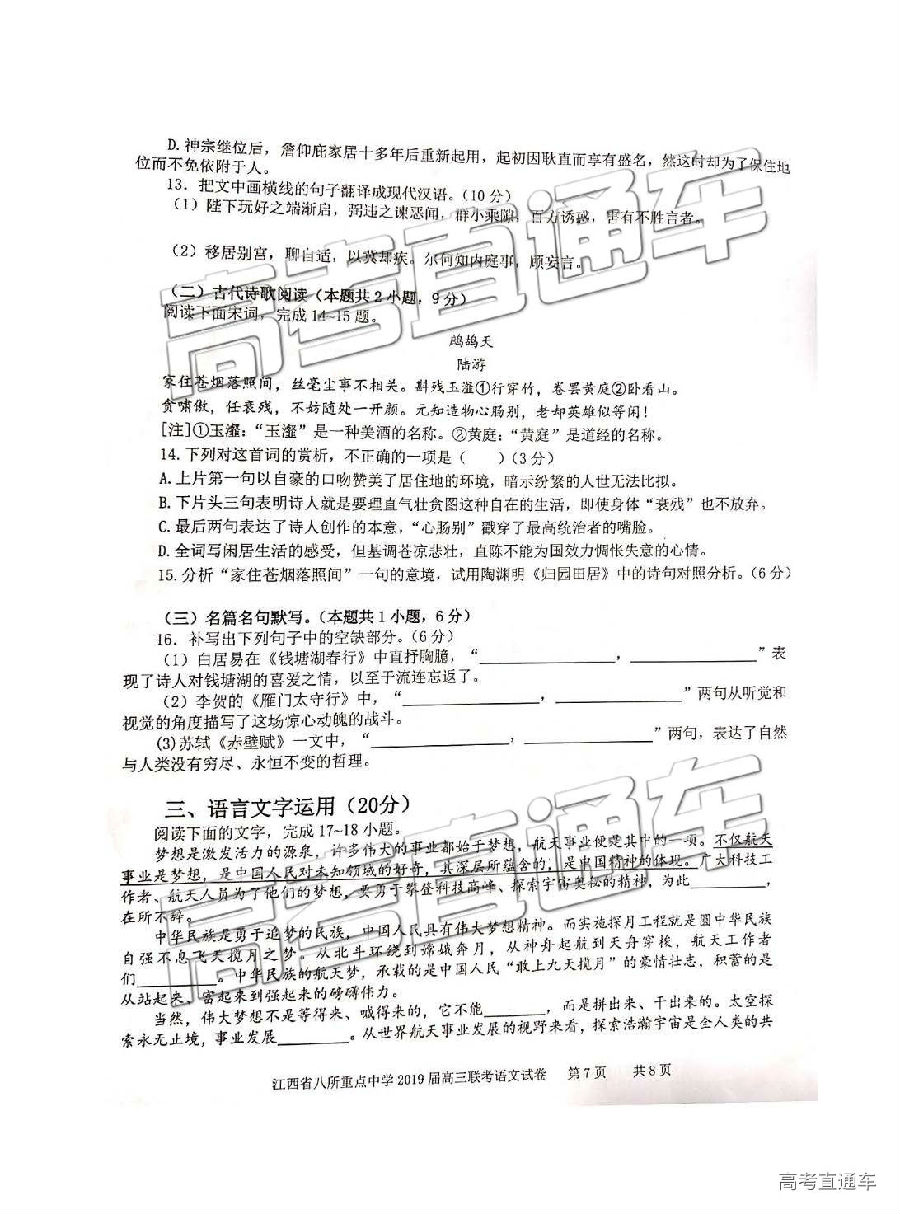 D. 神宗继位后，詹仰庇家居十多年后重新起用，起初因耿直而享有盛名，然这时却为了保住地
位而不免依附于人。
13. 把文中画横线的句子翻译成现代汉语。(10 分)
(1) 陛下玩好之端渐启，弼违之谏恶闻，群小乘隙，百方诱惑，害有不胜言者。
(2) 移居别宫，聊自适，以冀却疾。尔何知内庭事，顾妄言。
(二) 古代诗歌阅读（本题共 2 小题，9 分）
阅读下面宋词，完成 14~15 题。
鹧鸪天
陆游
家住苍烟落照间，丝毫尘事不相关。斟残玉瀣①行穿竹，卷罢黄庭②卧看山。
贪啸傲，任衰残，不妨随处一开颜。元知造物心肠别，老却英雄似等闲！
[注]①玉瀣：“玉瀣”是一种美酒的名称。②黄庭：“黄庭”是道经的名称。
14. 下列对这首词的赏析，不正确的一项是（　　）(3 分)
A. 上片第一句以自豪的口吻赞美了居住地的环境，暗示纷繁的人世无法比拟。
B. 下片头三句表明诗人就是要理直气壮贪图这种自在的生活，即使身体“衰残”也不放弃。
C. 最后两句表达了诗人创作的本意，“心肠别”戳穿了最高统治者的嘴脸。
D. 全词写闲居生活的感受，但基调苍凉悲壮，直陈不能为国效力惆怅失意的心情。
15. 分析“家住苍烟落照间”一句的意境，试用陶渊明《归园田居》中的诗句对照分析。(6 分)
(三) 名篇名句默写。(本题共 1 小题，6 分)
16. 补写出下列句子中的空缺部分。(6 分)
(1) 白居易在《钱塘湖春行》中直抒胸臆，“____________，____________”表
现了诗人对钱塘湖的喜爱之情，以至于流连忘返了。
(2) 李贺的《雁门太守行》中，“____________，____________”两句从听觉和
视觉的角度描写了这场惊心动魄的战斗。
(3)苏轼《赤壁赋》一文中，“____________，____________”两句，表达了自然
与人类没有穷尽、永恒不变的哲理。
三、语言文字运用（20分）
阅读下面的文字，完成 17~18 小题。
梦想是激发活力的源泉，许多伟大的事业都始于梦想，航天事业便是其中的一项。不仅航天
事业是梦想，是中国人民对未知领域的好奇，其深层所蕴含的，是中国精神的体现。广大科技工
作者、航天人员为了他们的梦想，要勇于攀登科技高峰、探索宇宙奥秘的精神，为此________，
在所不辞。
中华民族是勇于追梦的民族，中国人民具有伟大梦想精神。而实施探月工程就是圆中华民族
自强不息飞天揽月之梦。从北斗环绕到嫦娥奔月，从神舟起航到天舟穿梭，航天工作者
们________。中华民族的航天梦，承载的是中国人民“敢上九天揽月”的豪情壮志，积蓄的是
从站起来、富起来到强起来的磅礴伟力。
当然，伟大梦想不是等得来、喊得来的，它不能________，而是拼出来、干出来的。太空探
索永无止境，事业发展________。从世界航天事业发展的视野来看，探索浩瀚宇宙是全人类的共
江西省八所重点中学 2019 届高三联考语文试卷　第 7 页　共 8 页
高考直通车
高考直通车
高考直通车